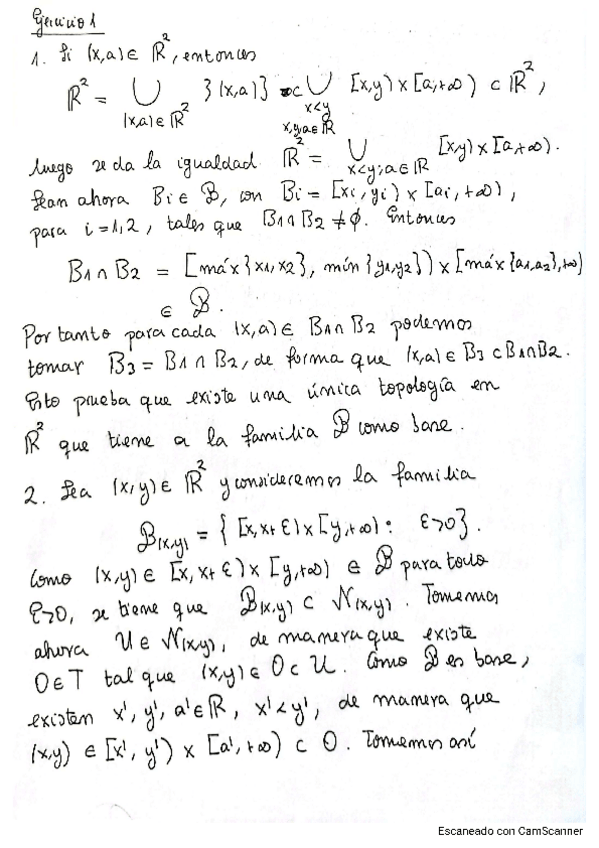 Ejercicio 1
1. Si (x,a) ∈ ℝ², entonces
ℝ² = ⋃ {(x,a)} ⊂ ⋃ [x,y) × [a,+∞) ⊂ ℝ²,
(x,a)∈ℝ² x<y
x,y,a∈ℝ
luego se da la igualdad ℝ² = ⋃ [x,y) × [a,+∞).
x<y;a∈ℝ
Sean ahora Bi ∈ ℬ, con Bi = [xi, yi) × [ai, +∞),
para i=1,2, tales que B1∩B2 ≠ ∅. Entonces
B1 ∩ B2 = [máx{x1,x2}, mín{y1,y2}) × [máx{a1,a2},+∞)
∈ ℬ.
Por tanto para cada (x,a) ∈ B1∩B2 podemos
tomar B3 = B1 ∩ B2, de forma que (x,a) ∈ B3 ⊂ B1∩B2.
Esto prueba que existe una única topología en
ℝ² que tiene a la familia ℬ como base.
2. Sea (x,y) ∈ ℝ² y consideremos la familia
ℬ(x,y) = { [x, x+ε) × [y,+∞) : ε>0 }.
Como (x,y) ∈ [x, x+ε) × [y,+∞) ∈ ℬ para todo
ε>0, se tiene que ℬ(x,y) ⊂ 𝒩(x,y). Tomemos
ahora U ∈ 𝒩(x,y), de manera que existe
O∈T tal que (x,y) ∈ O ⊂ U. Como ℬ es base,
existen x', y', a' ∈ ℝ, x' < y', de manera que
(x,y) ∈ [x', y') × [a', +∞) ⊂ O. Tomemos así
Escaneado con CamScanner